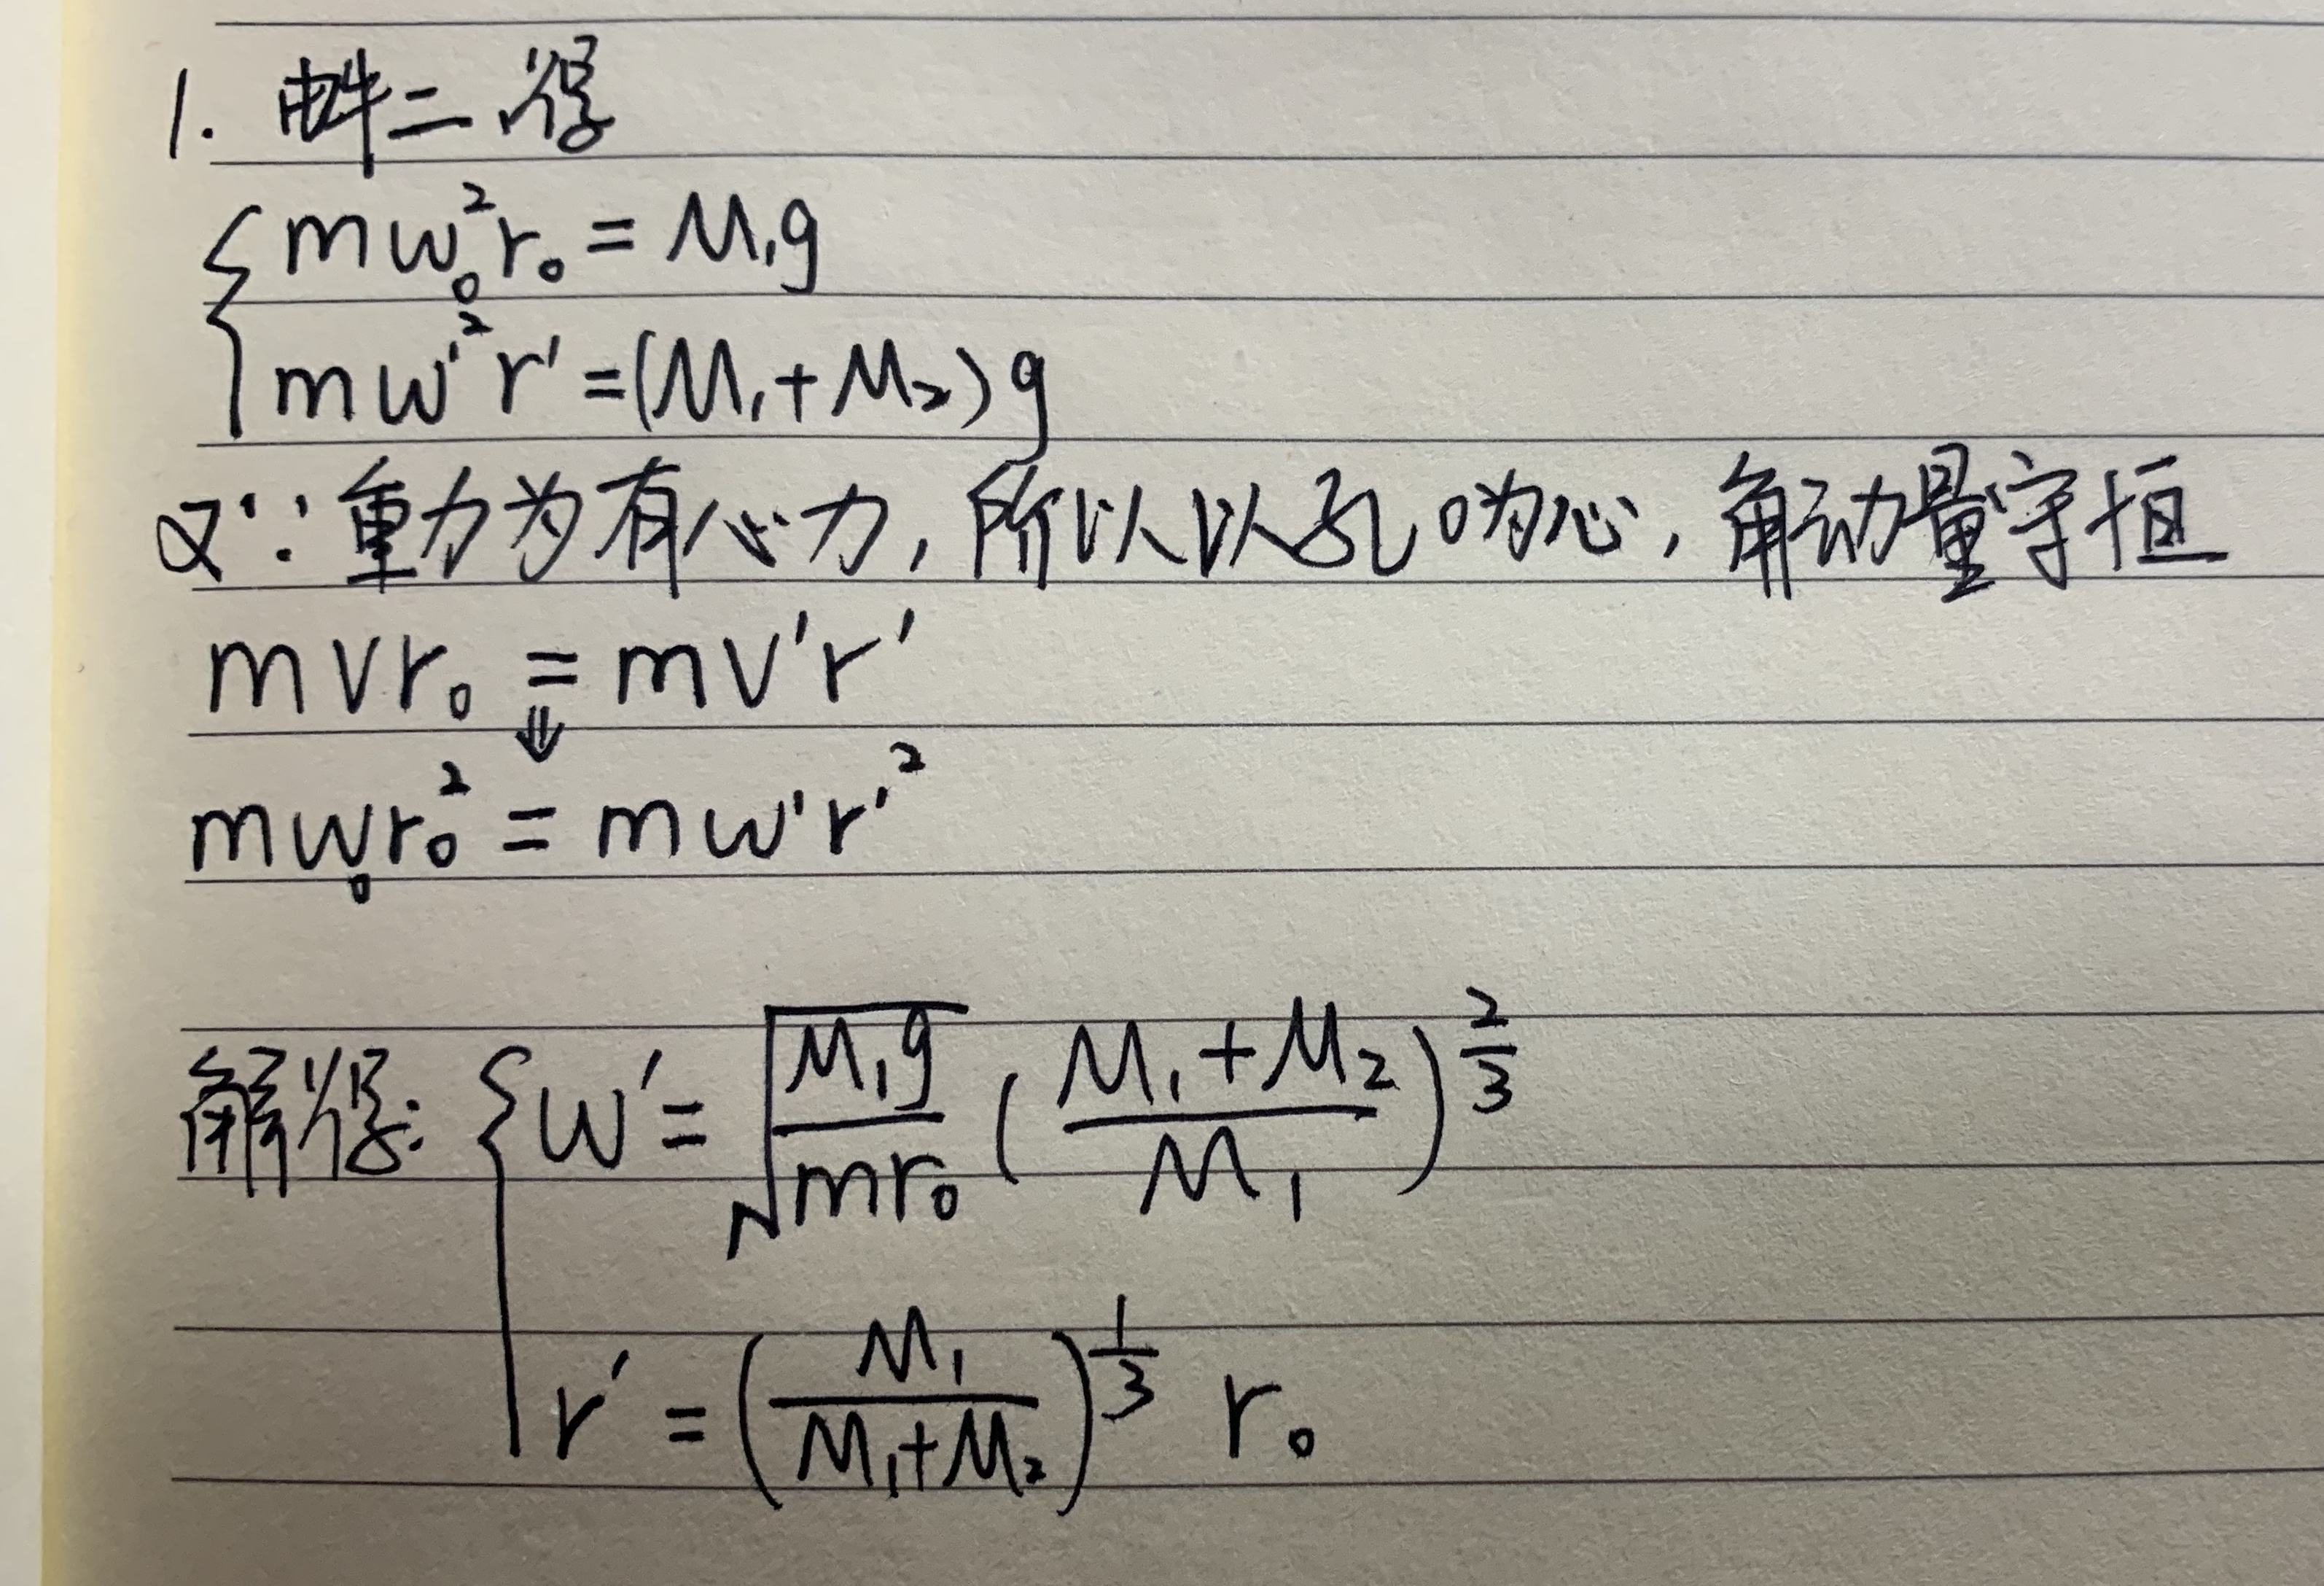 1. 由牛二得
mω₀²r₀ = M₁g
mω'²r' = (M₁+M₂)g
又∵重力为有心力,所以以孔O为心,角动量守恒
mvr₀ = mv'r'
⇓
mω₀r₀² = mω'r'²
解得: { ω' = √(M₁g/mr₀) ((M₁+M₂)/M₁)^(2/3)
r' = (M₁/(M₁+M₂))^(1/3) r₀